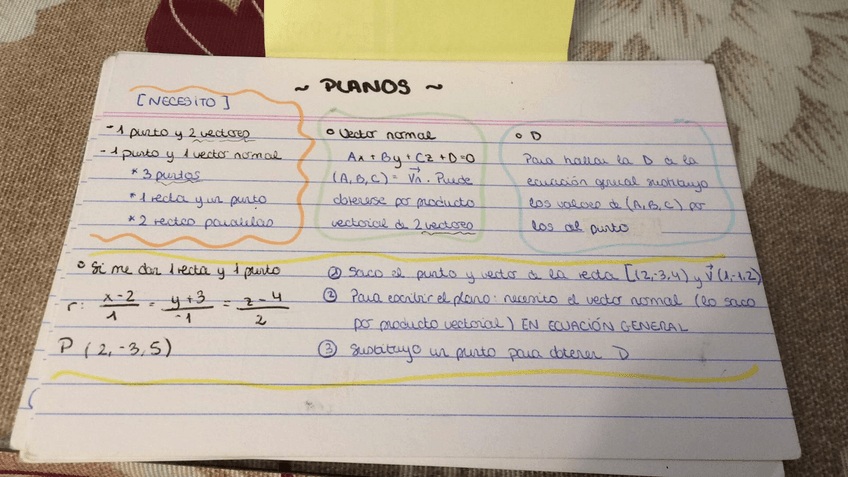 ~ PLANOS ~
[NECESITO]
- 1 punto y 2 vectores
- 1 punto y 1 vector normal
* 3 puntos
* 1 recta y un punto
* 2 rectas paralelas
o Vector normal
Ax + By + Cz + D = 0
(A, B, C) = V⃗n. Puede
obtenerse por producto
vectorial de 2 vectores
o D
Para hallar la D de la
ecuación general sustituyo
los valores de (A, B, C) por
los del punto
o Si me dan 1 recta y 1 punto
r: x-2/1 = y+3/-1 = z-4/2
P (2, -3, 5)
① Saco el punto y vector de la recta [(2,-3,4) y v⃗ (1,-1,2)
② Para escribir el plano: necesito el vector normal (lo saco
por producto vectorial) EN ECUACIÓN GENERAL
③ Sustituyo un punto para obtener D